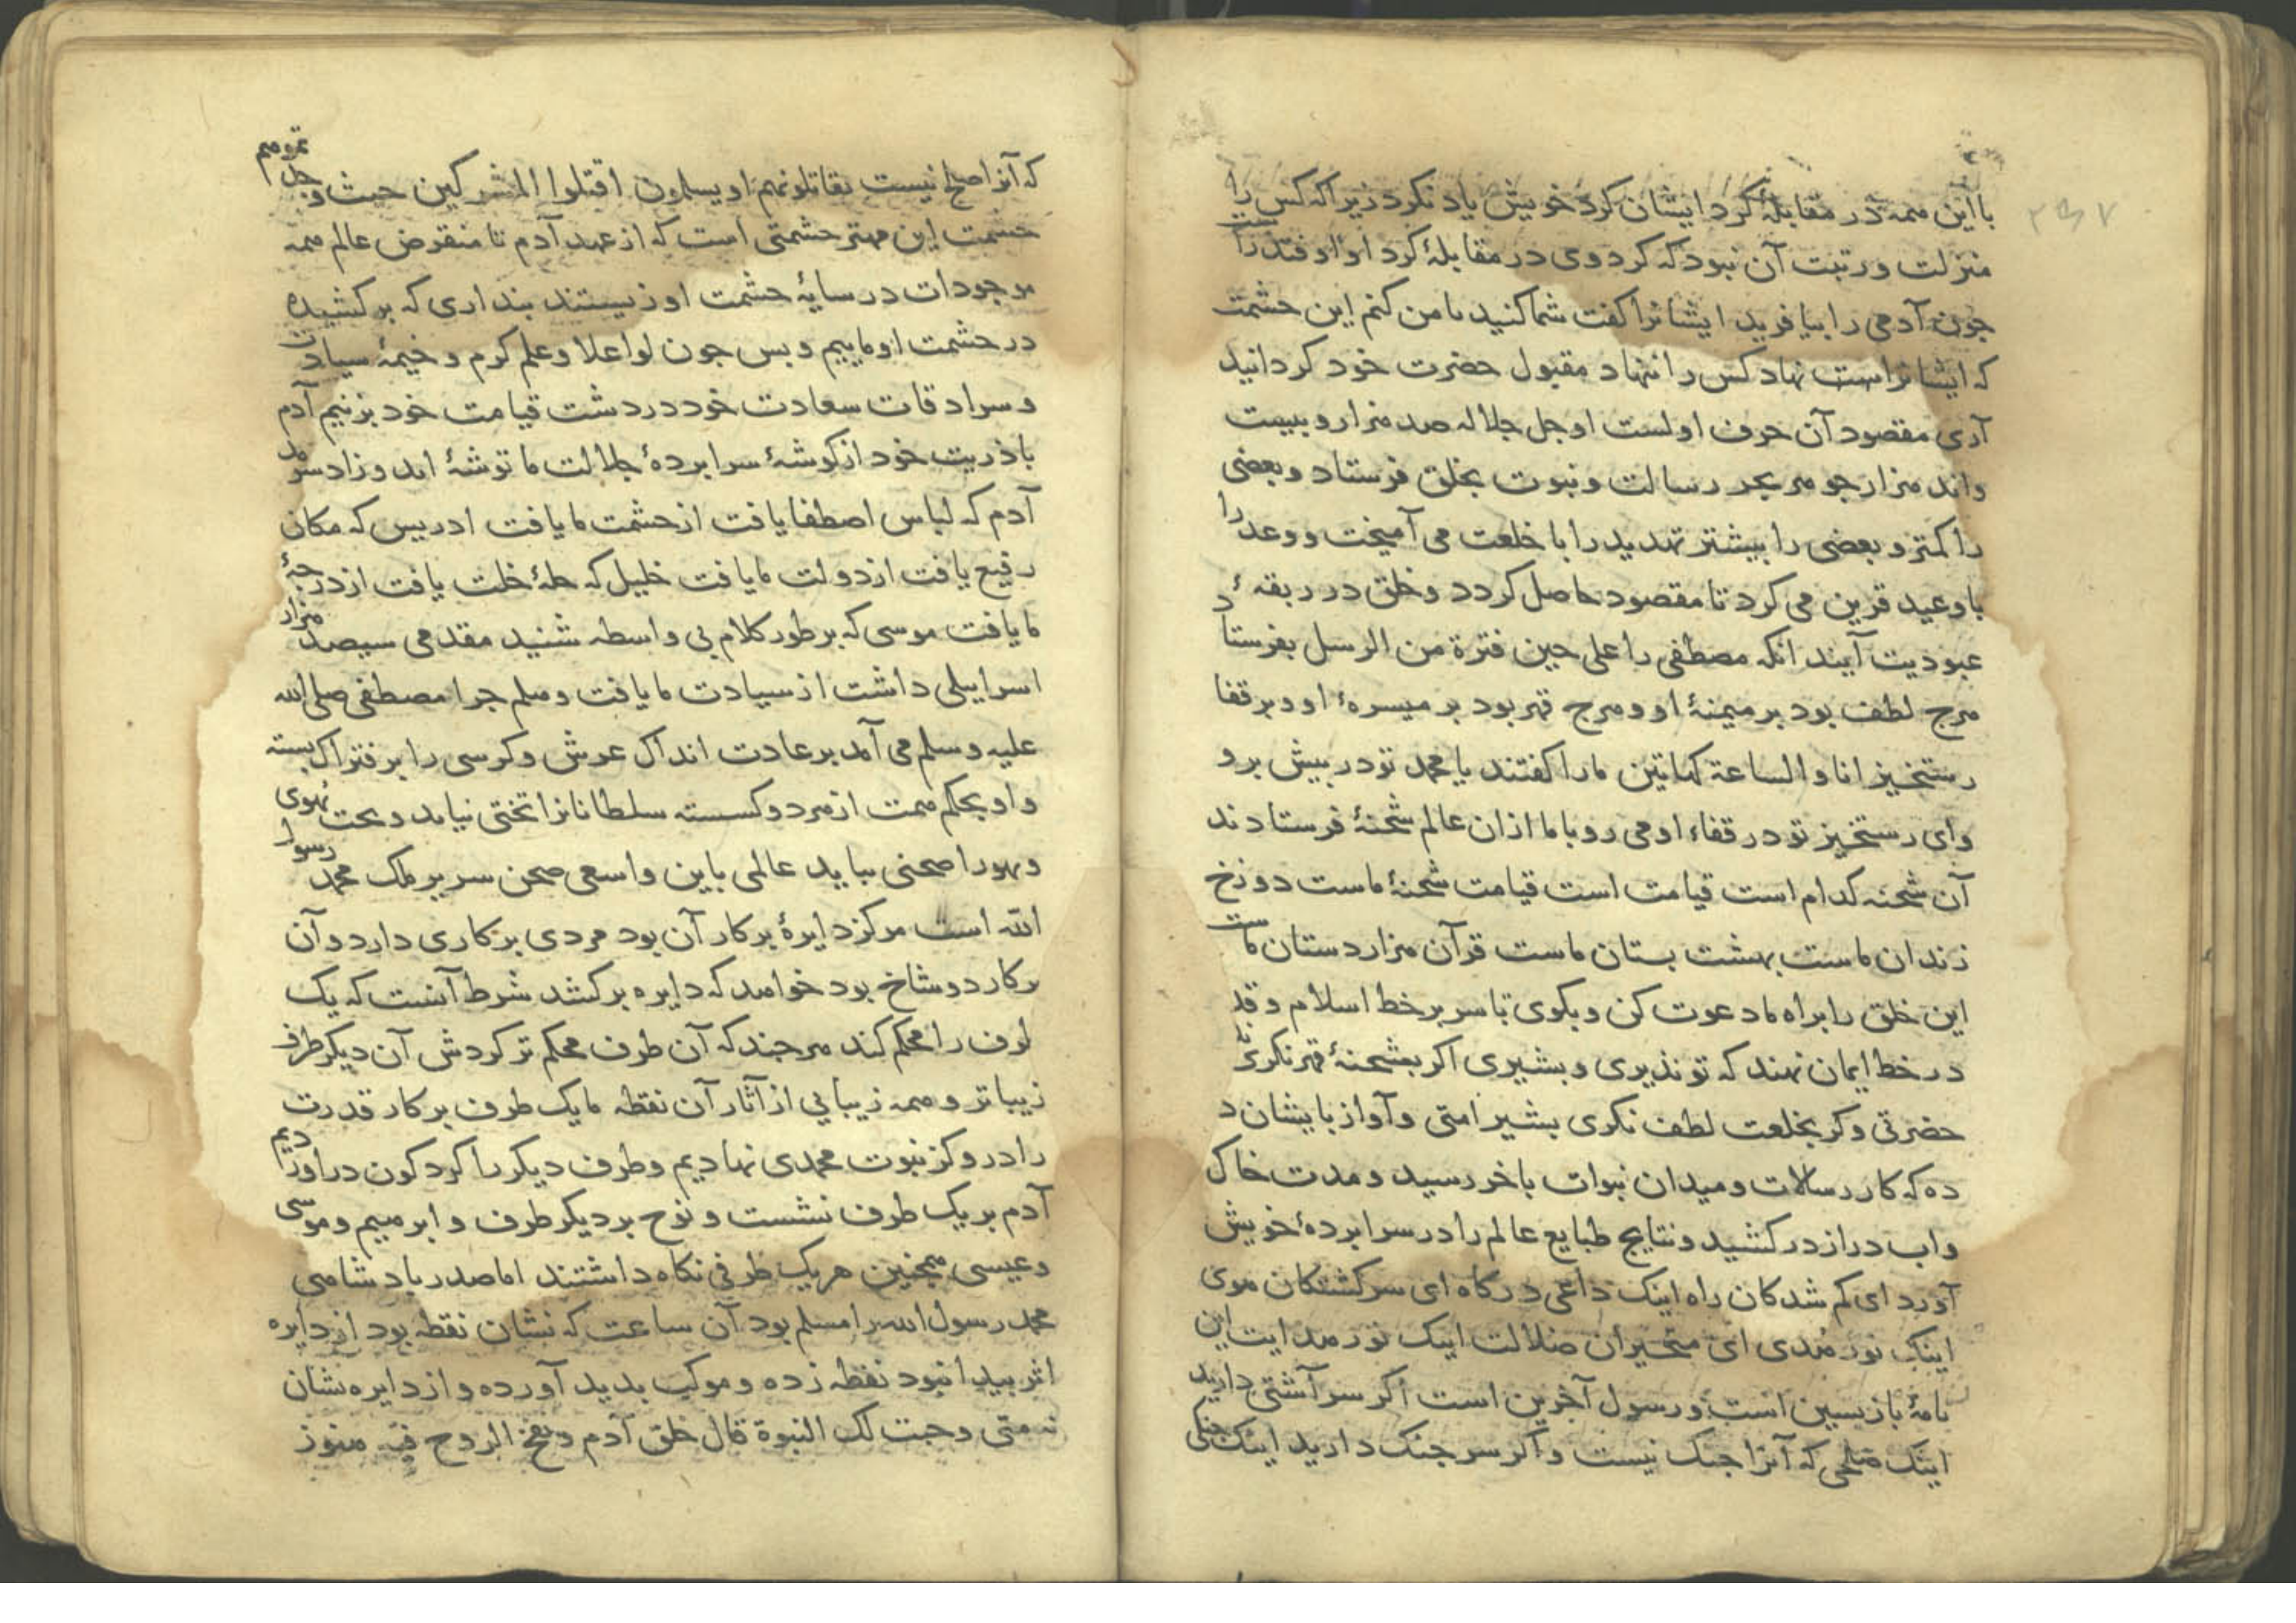 ۲۹۷
با این همه در مقابلهٔ کرد ایشان کرد خویش یاد نکرد زیرا که کس را
منزلت و رتبت آن نبود که کرد وی در مقابلهٔ کرد او اوفتد
چون آدمی را بیافرید ایشانرا کفت شما کنید یا من کنم این حشمت
که ایشانراست نهاد کس را ننهاد مقبول حضرت خود کردانید
آری مقصود آن حرف اولست او جل جلاله صد هزار و بیست
واند هزار جوهر بحر رسالت و نبوت بخلق فرستاد و بعضی
را کمتر و بعضی را بیشتر تهدید را با خلعت می آمیخت و وعد را
با وعید قرین می کرد تا مقصود حاصل کردد و خلق در ربقهٔ
عبودیت آیند انکه مصطفی را علی حین فترة من الرسل بفرستاد
هرج لطف بود بر میمنهٔ او و هرج قهر بود بر میسرهٔ او و بر قفا
رستخیز انا والساعة کهاتین ما را کفتند یا محمد تو در پیش برو
وای رستخیز تو در قفاء او می رو با ما ازان عالم شحنهٔ فرستادند
آن شحنه کدام است قیامت است قیامت شحنهٔ ماست دوزخ
زندان ماست بهشت بستان ماست قرآن هزار دستان ماست
این خلق را براه ما دعوت کن و بکوی تا سر بر خط اسلام و قد
در خط ایمان نهند که تو نذیری و بشیری اکر بشحنهٔ قهر نکری
حضرتی و کر بخلعت لطف نکری بشیر امتی و آواز بایشان د
ده که کار رسالات و میدان نبوات باخر رسید و مدت خاک
واب دراز در کشید و نتایج طبایع عالم را در سرابردهٔ خویش
آورد ای کم شدکان راه اینک داعی درکاه ای سرکشتکان هوی
اینک نور هدی ای متحیران ضلالت اینک نور هدایت این
نامهٔ بازپسین است و رسول آخرین است اکر سر آشتی دارید
اینک صلحی که آنرا جنک نیست و اکر سر جنک دارید اینک جنکی
که آنرا صلح نیست تقاتلونهم او یسلمون اقتلوا المشرکین حیث وجدتموهم
حشمت این مهتر حشمتی است که از عهد آدم تا منقرض عالم همه
موجودات در سایهٔ حشمت او زیستند بنداری که برکشیده
در حشمت او ماییم و بس چون لوا علا و علم کرم و خیمهٔ سیادت
و سرادقات سعادت خود در دشت قیامت خود بزنیم آدم
با ذریت خود از کوشهٔ سرابردهٔ جلالت ما توشهٔ اند و زاد
آدم که لباس اصطفا یافت از حشمت ما یافت ادریس که مکان
رفیع یافت از دولت ما یافت خلیل که حلهٔ خلت یافت از درجهٔ
ما یافت موسی که بر طور کلام بی واسطه شنید مقدمی سیصد هزار
اسراییلی داشت از سیادت ما یافت و هلم جرا مصطفی صلی الله
علیه و سلم می آمد بر عادت انداک عرش و کرسی را بر فتراک بسته
و او بحکم همت از هر دو کسسته سلطانانرا تختی نیاید
صحنی بباید عالمی باین واسعی صحن سریر ملک محمد رسول
الله است مرکز دایرهٔ برکار آن بود مردی برکاری دارد و آن
برکار دو شاخ بود خواهد که دایره برکشد شرط آنست که یک
طرف را محکم کند هر جند که آن طرف محکم تر کردش آن دیکر طرف
زیباتر و همه زیبایی از آثار آن نقطه ما یک طرف برکار قدرت
را در مرکز نبوت محمدی نهادیم و طرف دیکر را کرد کون درآوردیم
آدم بر یک طرف نشست و نوح بر دیکر طرف و ابرهیم و موسی
و عیسی همجنین هر یک طرفی نکاه داشتند اما صدر بادشاهی
محمد رسول الله را مسلم بود آن ساعت که نشان نقطه بود از دایره
اثر بیدا نبود نقطه زده و موکب بدید آورده و از دایره نشان
نه متی وجبت لک النبوة قال خلق آدم و نفخ الروح فیه هنوز